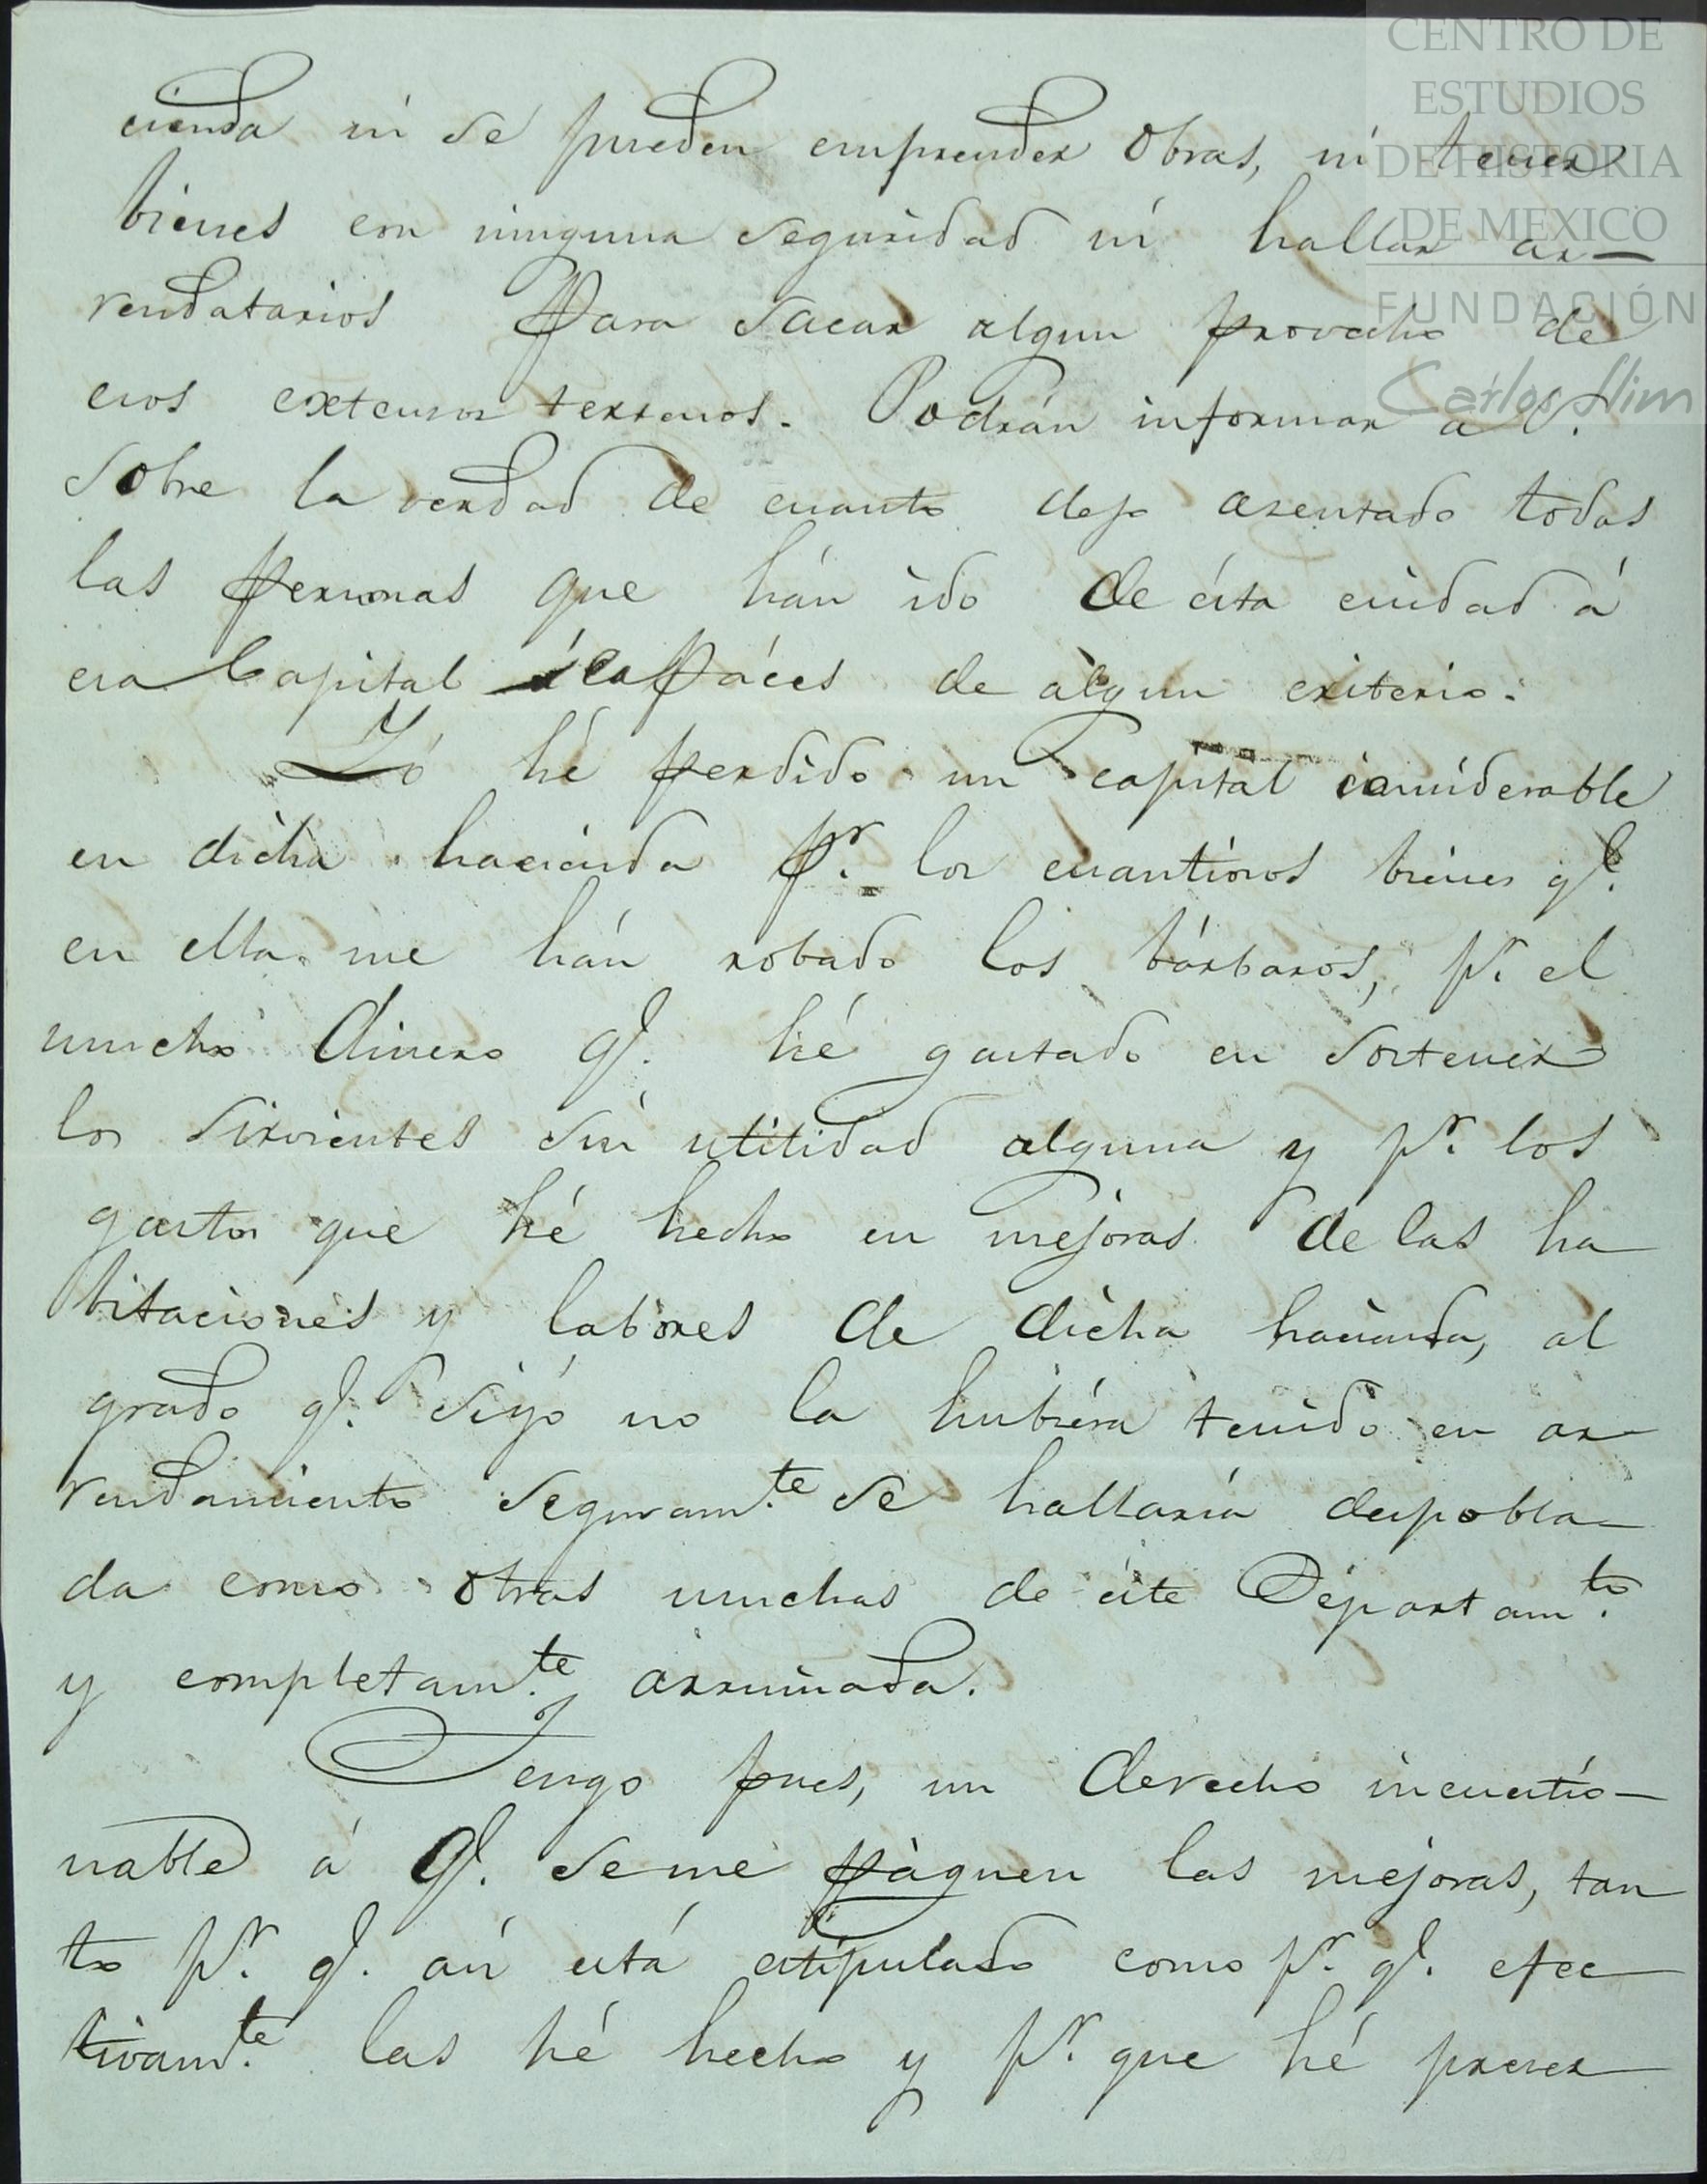 CENTRO DE
ESTUDIOS
DE HISTORIA
DE MEXICO
FUNDACIÓN
Carlos Slim
cienda ni se pueden emprender obras, ni tener
bienes con ninguna seguridad ni hallar ar—
rendatarios para sacar algun provecho de
esos extensos terrenos. Podrán informar a V.
sobre la verdad de cuanto dejo asentado todas
las personas que hán ido de ésta ciudad á
esa Capital capáces de algun criterio.
Yó hé perdido un capital considerable
en dicha hacienda pr. los cuantiosos bienes q.
en ella me hán robado los bárbaros, pr. el
mucho dinero q. hé gastado en sostener
los sirvientes sin utilidad alguna y pr. los
gastos que hé hecho en mejoras de las ha
bitaciones y labores de dicha hacienda, al
grado q. si yó no la hubiéra tenido en ar
rendamiento seguramte. se hallaría despobla—
da como otras muchas de éste Departamto.
y completamte. arruinada.
Tengo pues, un derecho incuestio—
nable á q. se me páguen las mejoras, tan
to pr. q. así está estipulado como pr. q. efec
tivamte. las hé hecho y pr. que hé preser